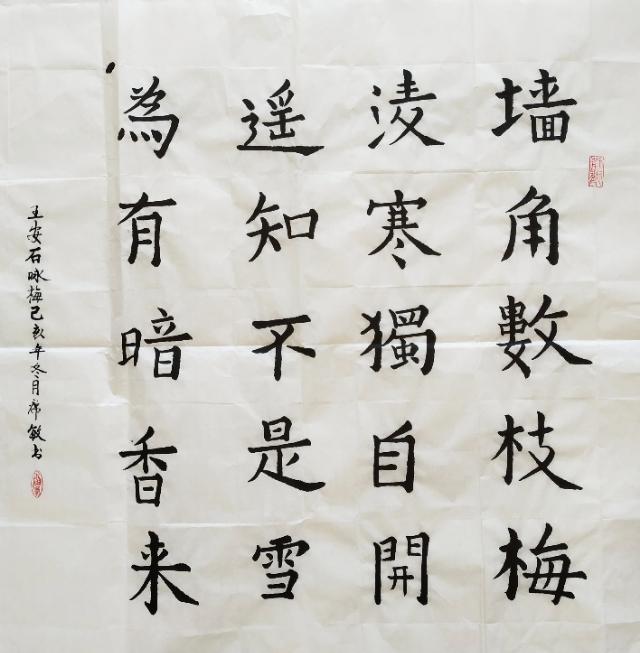 墙角數枝梅
淩寒獨自開
遥知不是雪
為有暗香来
王安石咏梅己亥年冬月席敏书